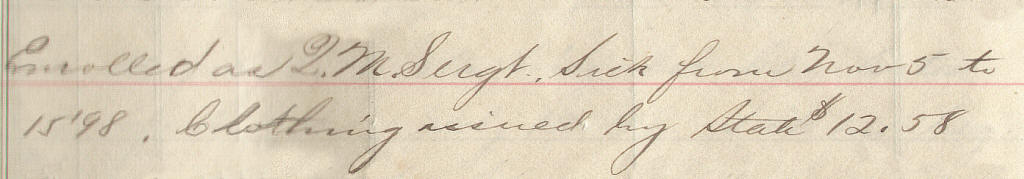 Enrolled as Q.M. Sergt. Sick from Nov 5 to
15 '98. Clothing issued by State $12.58